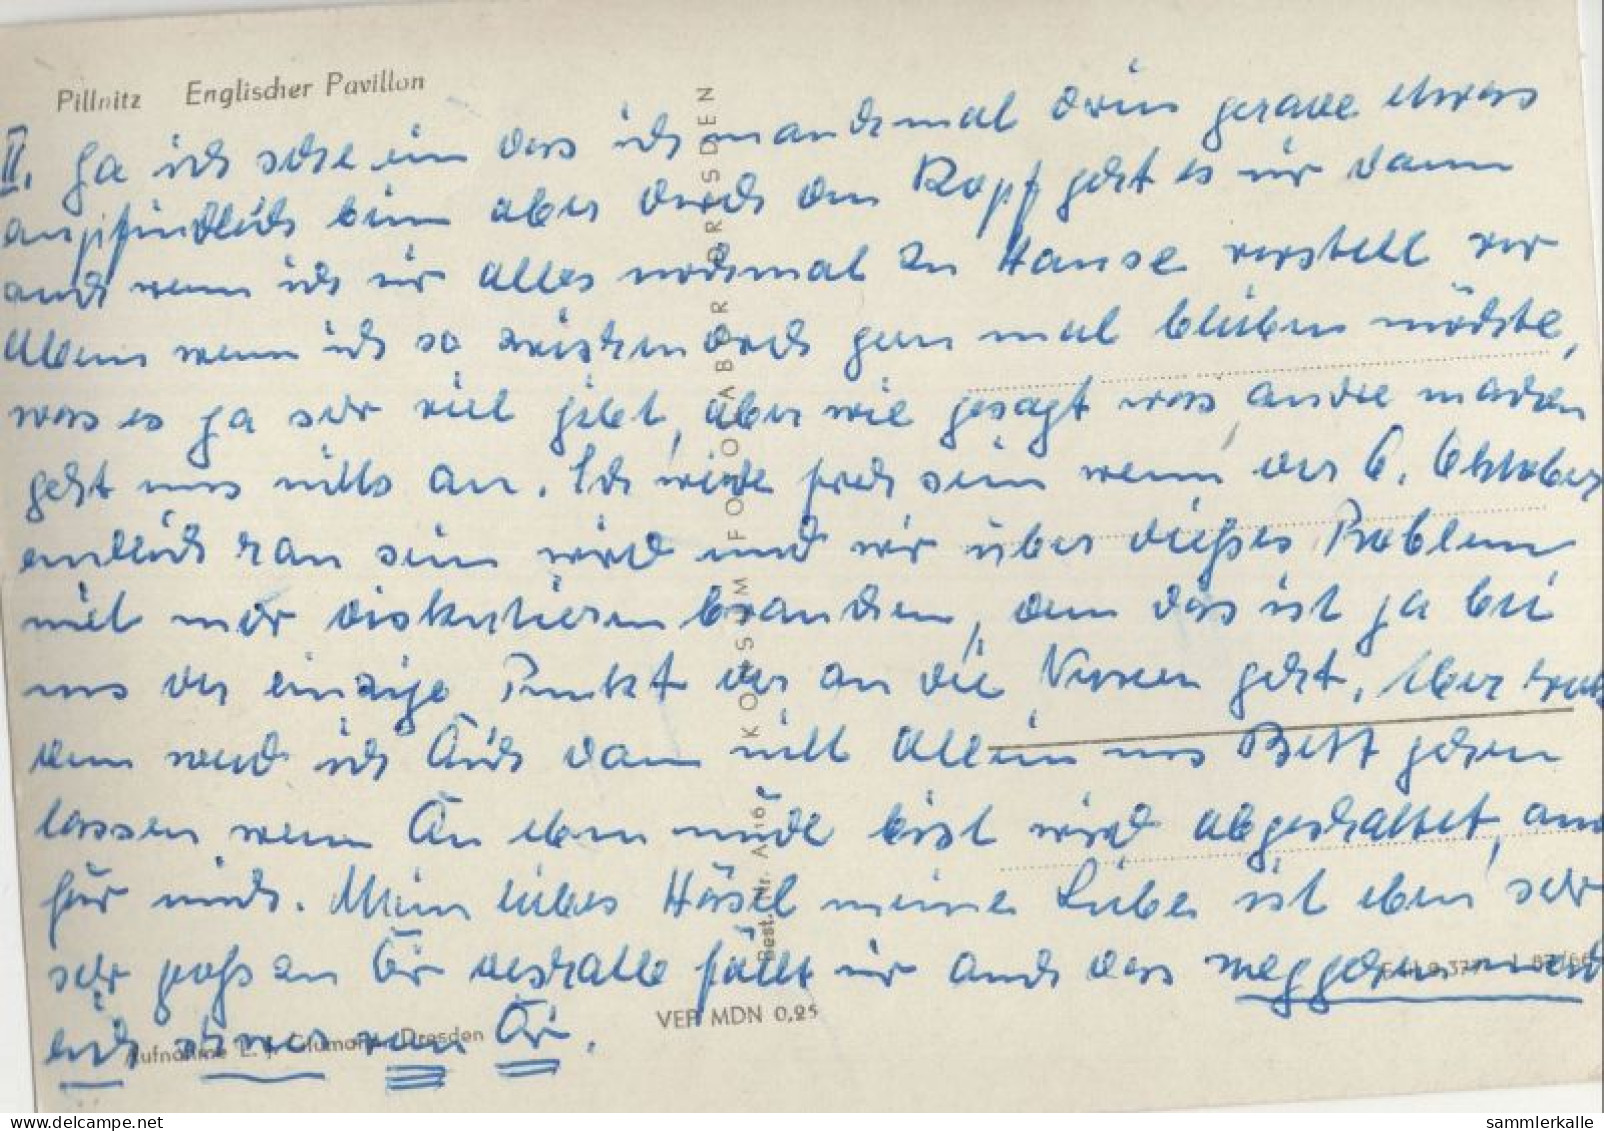 Pillnitz Englischer Pavillon
II. Ja ich sehe ein das ich manchmal drin gerade etwas
empfindlich bin aber durch den Kopf geht es mir dann
auch wenn ich mir alles nochmal zu Hause vorstell vor
allem wenn ich so zwischendrch gern mal bleiben möchte,
was es ja sehr viel gibt, aber wie gesagt was andre machen
geht uns nichts an. Ich würde froh sein wenn der 6. Oktober
endlich ran sein wird und wir über dießes Problem
nicht mehr diskutieren brauchen, denn das ist ja bei
uns der einzige Punkt der an die Nerven geht. Aber trotz
dem werd ich Dich dann nicht allein ins Bett gehen
lassen wenn Du eben müde bist wird abgeschaltet, auch
für mich. Mein liebes Häsel meine Liebe ist eben sehr
sehr groß zu Dir deshalb fällt mir auch das weggehen
schwer von Dir.
KONSUM FOTOLABOR DRESDEN
Best.-Nr. A 16
VEP MDN 0,25
Aufnahme L. J. Dresden
sammlerkalle